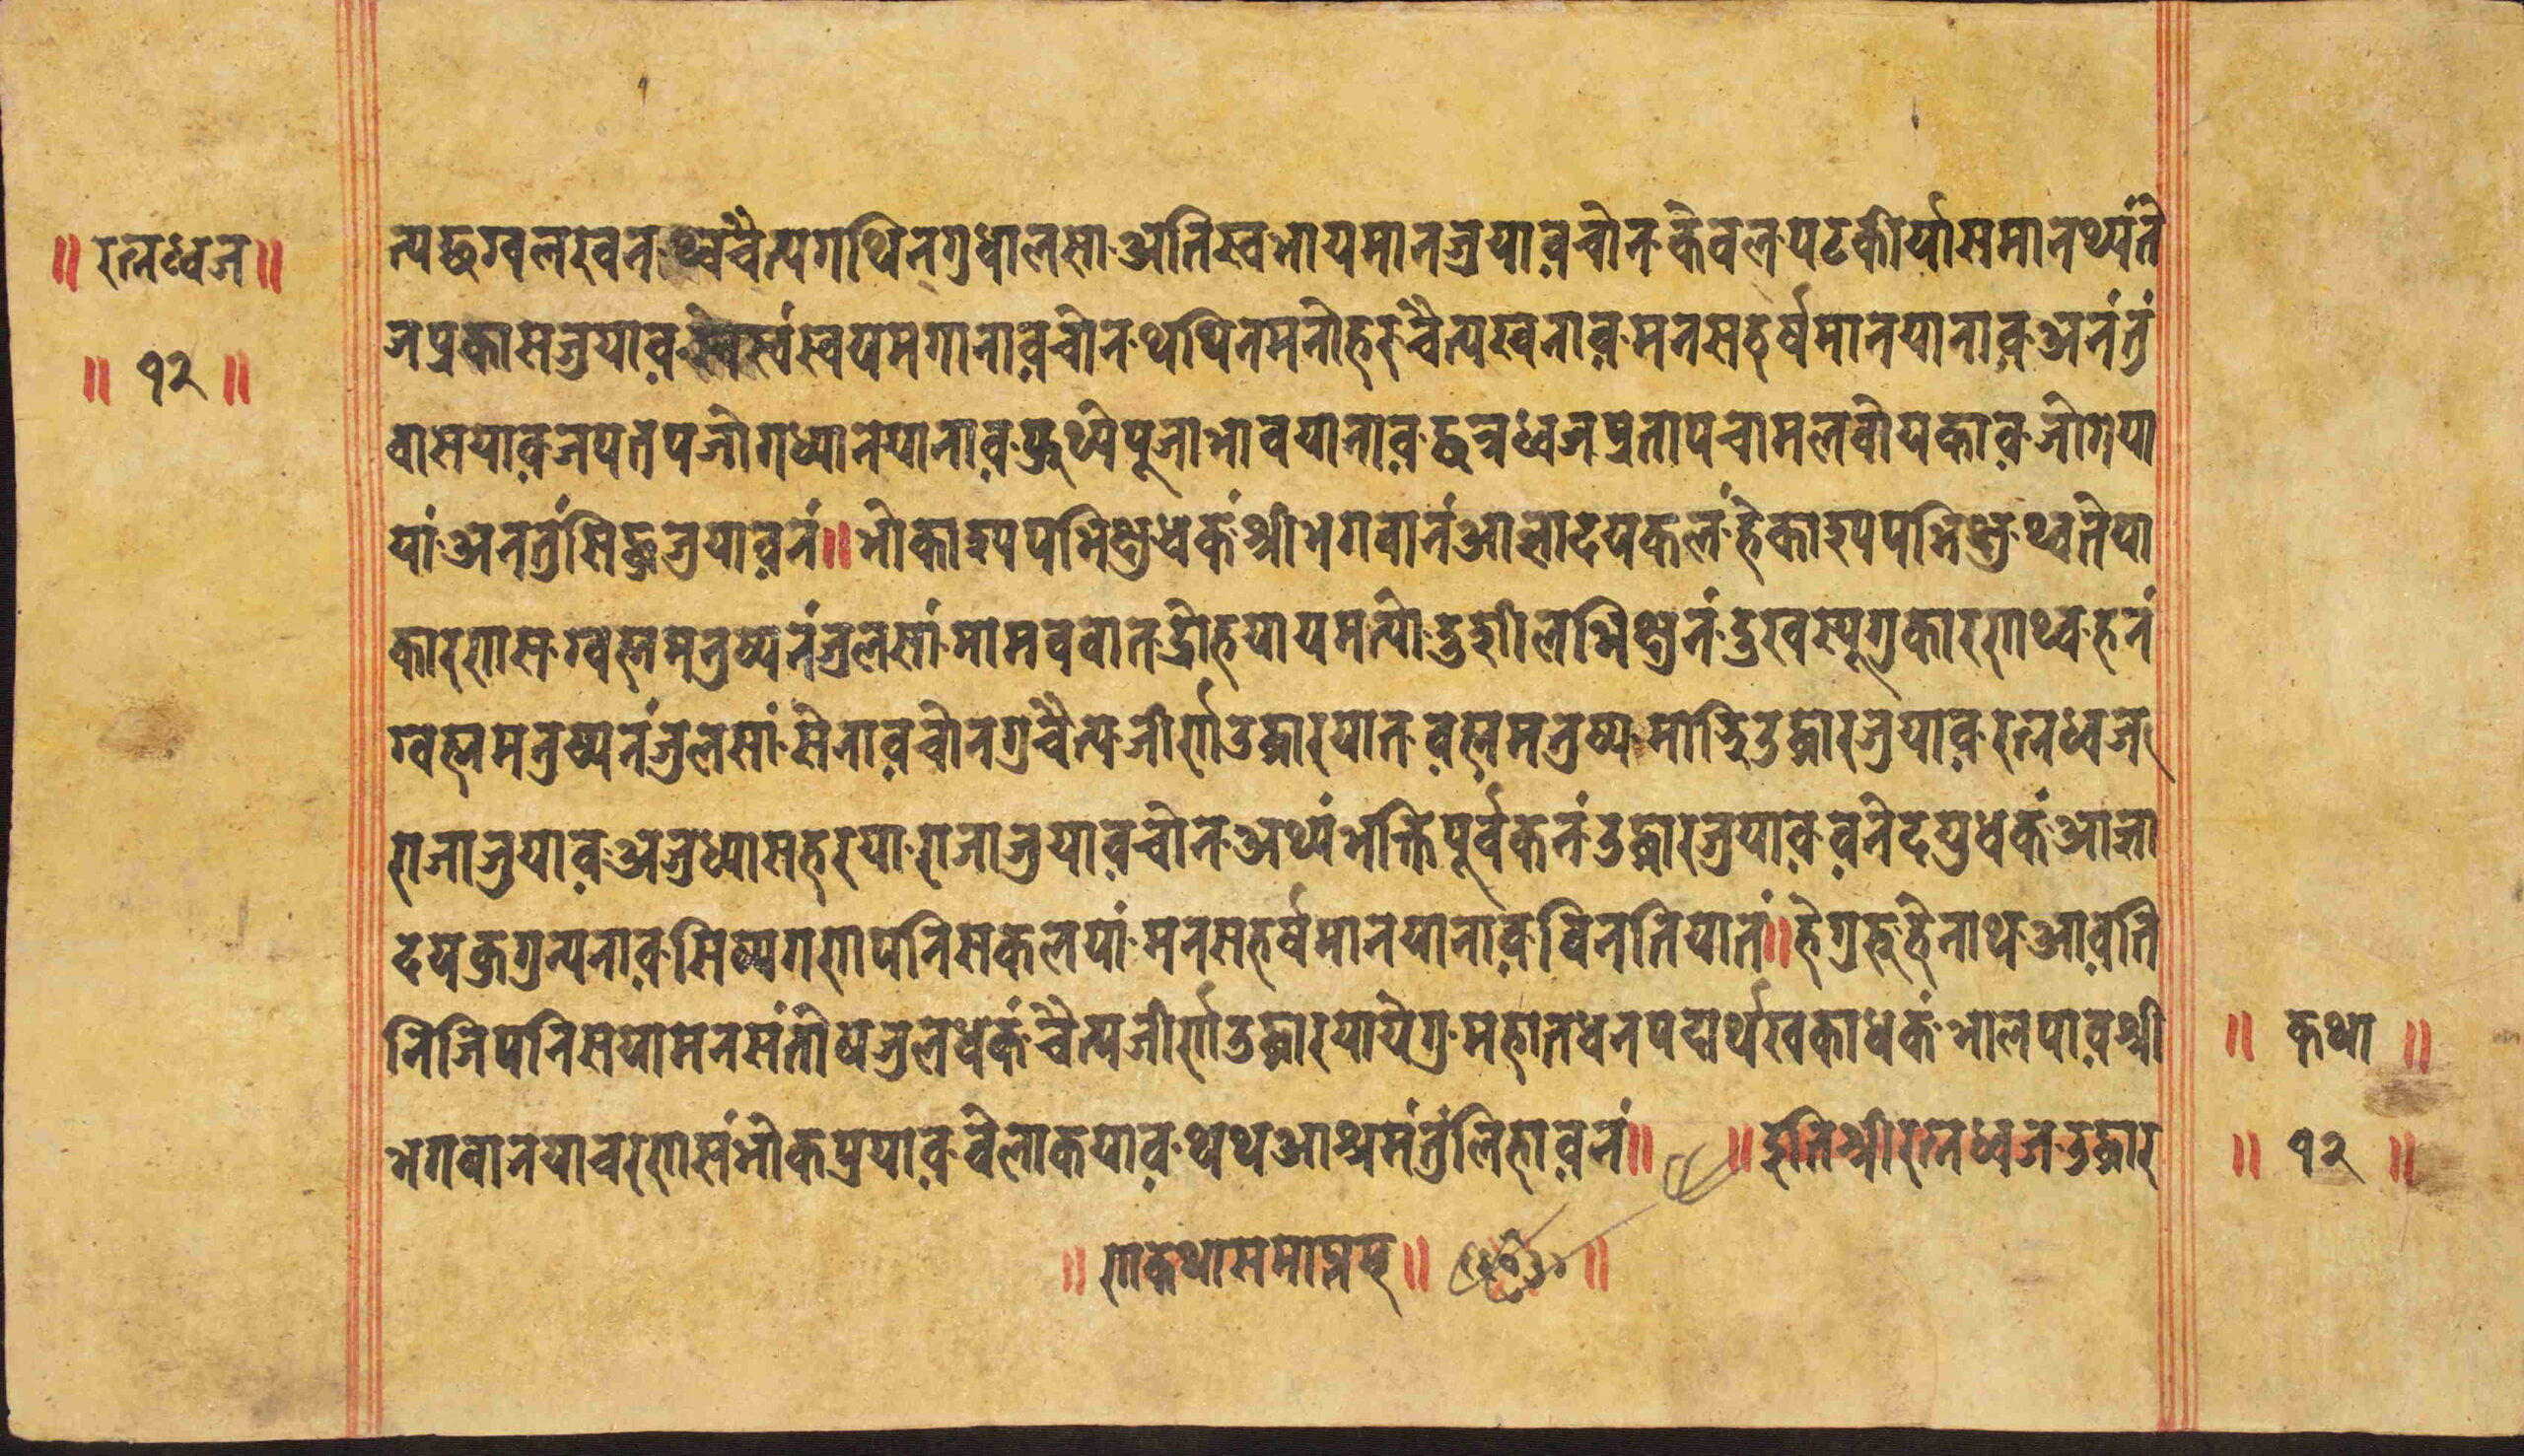 ॥ रत्नध्वज ॥
॥ १२ ॥
त्यद्धग्वलखन थ्वचैत्यगथिनगुधालसा अतिस्वभायमानजुयाव़चोन केवल पटकीर्यासमानथ्यंते
जप्रकासजुयाव़ स्वयमगानाव़चोन थथिनमनोहरचैत्यखनाव़ मनसहर्षमानयानाव़ अनंतुं
वासयाव़ जपतपजोगध्यानयानाव़ पूजाभावयानाव़ छत्रध्वजप्रतापचामलवोयकाव़ जोगया
यां अनतुंसिद्धजुयाव़नं॥ भोकाश्यपभिक्षुधकं श्रीभगवानंआज्ञादयकल हेकाश्यपभिक्षु थ्वतेया
कारणस ग्वह्ममनुष्यनंजुलसां मामववात द्रोहयायमत्यो दुशीलभिक्षुनं दुखस्यूगुकारणथ्व हनं
ग्वह्ममनुष्यनंजुलसां सेनाव़चोनगुचैत्य जीर्णउद्धारयात व़ह्ममनुष्य उद्धारजुयाव़ रत्नध्वज
राजाजुयाव़ अजुध्यासहरया राजाजुयाव़चोन अथ्यंभक्तिपूर्वकनं उद्धारजुयाव़ व़नेदयुधकं आज्ञा
दयकुगुन्यनाव़ सिष्यगणपनिसकलयां मनसहर्षमानयानाव़ विनतियातं॥ हेगुरुहेनाथ आव़तिनि
जिपनिसयामनसंतोषजुलधकं चैत्यजीर्णउद्धारयायेगु महानधनपदार्थखकाधकं भालपाव़ श्री
भगवानयाचरणसंभोकपुयाव़ वेलाकयाव़ थथआश्रमंतुंलिहाव़नं॥ ॥ इतिश्रीरत्नध्वजउद्धार
॥ णकथासमाप्तम् ॥ ॥
॥ कथा ॥
॥ १२ ॥